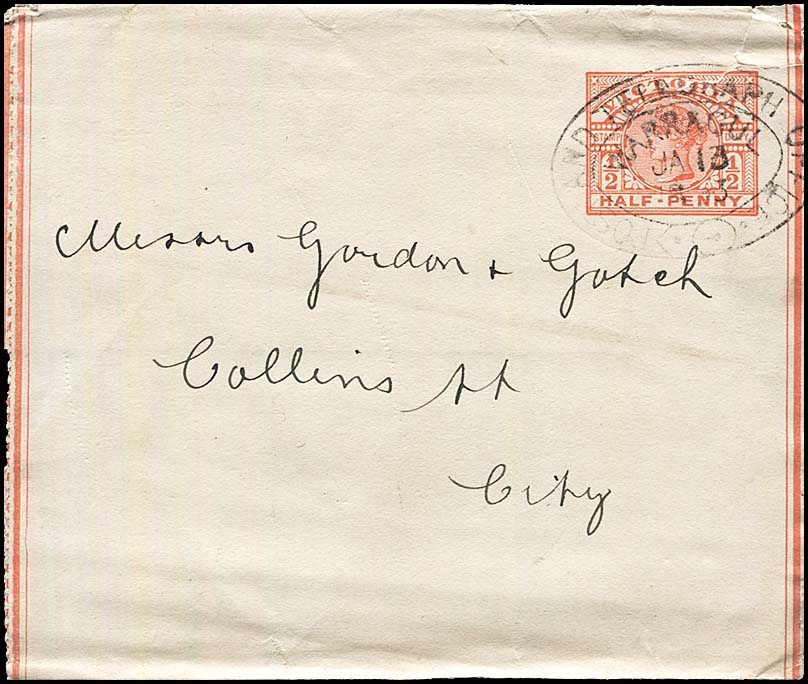 VICTORIA
STAMP DUTY
1/2 1/2
HALF-PENNY
AND TELEGRAPH OFFICE
WARRAGUL
JA 13
Messrs Gordon + Gotch
Collins St
City